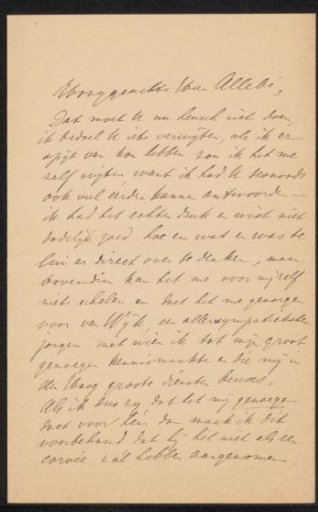 Hooggeachte Heer Allebé,
Dat moet U nu heusch niet doen,
ik bedoel U iets verwijten, als ik er
spijt van kon hebben zou ik het me
zelf wijten want ik had U
ook veel eerder kunnen antwoorden
ik had het echter druk en wist niet
dadelijk goed hoe en wat er was te
direct over te denken, maar
bovendien kan het me voor mijzelf
niet schelen en doet het me genoegen
voor van Wijk, een allersympathiekste
jongen met wien ik tot mijn groot
genoegen kennismaakte en die mij in
den Haag groote diensten bewees.
Als ik dus zeg dat het mij genoegen
doet voor hém dan maak ik dit
voorbehoud dat hij het niet als een
corvée zal hebben aangenomen